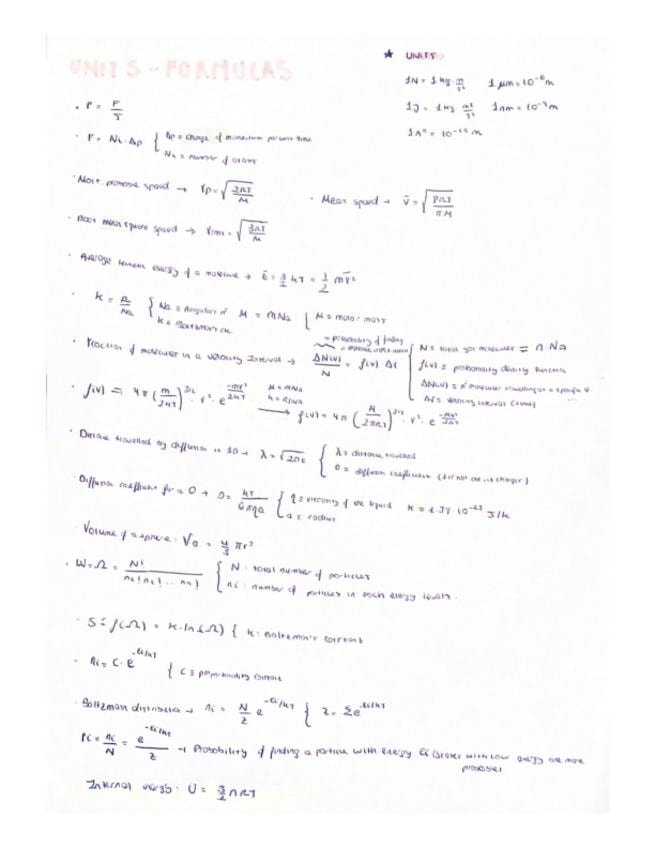 UNIT 5 - FORMULAS
★ UNITS
1N = 1 kg·m/s² 1 μm = 10⁻⁶m
1J = 1 kg·m²/s² 1nm = 10⁻⁹m
1A° = 10⁻¹⁰ m
· P = F/S
· F = Nc·Δp { Δp = change of momentum per unit time
Nc = number of
· Most probable speed → Vp = √(2RT/M)
· Mean speed → v̄ = √(8RT/πM)
· Root mean square speed → Vrms = √(3RT/M)
· Average kinetic energy of a molecule → Ē = 3/2 kT = 1/2 m v̄²
· K = R/Na { Na = Avogadro nº
K = Boltzmann cte
M = mNa { M = molar mass
= probability of finding
· Fraction of molecules in a velocity interval → ΔN(v)/N = f(v) Δv { N = total gas molecules = n·NA
f(v) = probability density function
ΔN(v) = nº molecules travelling at a specific v.
· f(v) = 4π (m/2πkT)^3/2 · v² · e^(-mv²/2kT) M = mNa
k = R/Na
→ f(v) = 4π (M/2πRT)^3/2 · v² · e^(-Mv²/2RT)
· Distance travelled by diffusion in 1D → λ = √2Dt { λ = distance travelled
D = diffusion coefficient
· Diffusion coefficient for a → D = kT/6πηa { η = viscosity of the liquid
a = radius
K = 1.37·10⁻²³ J/K
Volume of a sphere: V₀ = 4/3 πr³
· W = Ω = N!/n₁! n₂! ... nn! { N: total number of particles
ni: number of particles in each energy levels.
· S = f(Ω) = K·ln(Ω) { K: Boltzmann's constant
· ni = C·e^(-Ei/kT) { C = proportionality constant
· Boltzmann distribution → ni = N/z e^(-Ei/kT) { z = Σe^(-Ei/kT)
Pi = ni/N = e^(-Ei/kT)/z → Probability of finding a particle with energy Ei (states with low energy are more
probable)
Internal energy: U = 3/2 nRT